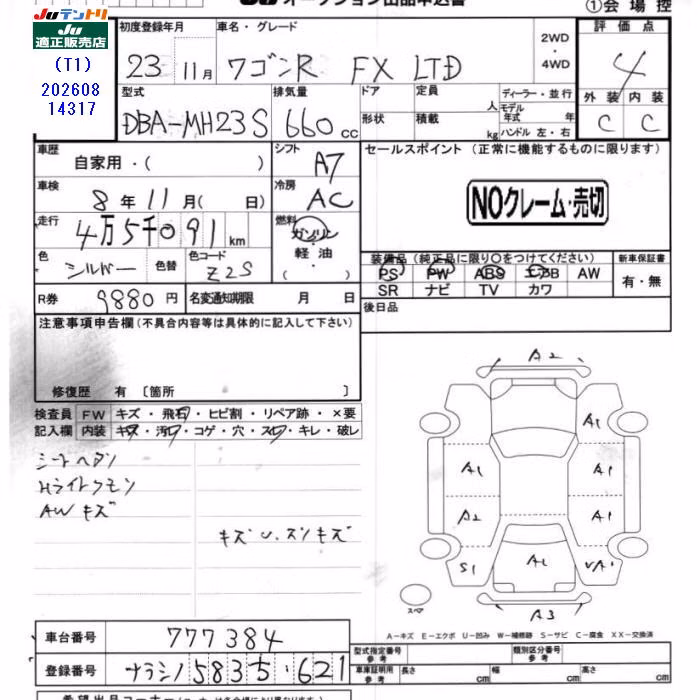 Juテントリ
Ju
適正販売店
(T1)
202608
14317
オークション出品申込書
①会場控
初度登録年月 車名・グレード 2WD・4WD 評価点
23 11月 ワゴンR FX LTD 4
型式 排気量 ドア 定員 人 ディーラー・並行 外装 内装
モデル年式 年
DBA-MH23S 660cc 形状 積載 kg ハンドル 左・右 C C
車歴 自家用・( ) シフト A7 セールスポイント (正常に機能するものに限ります)
車検 8年11月( 日) 冷房 AC NOクレーム・売切
走行 4万5千091km 燃料 ガソリン・軽油・( )
色 シルバー 色替 色コード Z2S
装備品 (純正品に限り○をつけてください) 新車保証書
PS PW ABS エアB AW 有・無
SR ナビ TV カワ
R券 9880円 名変通知期限 月 日 後日品
注意事項申告欄 (不具合内容等は具体的に記入して下さい)
修復歴 有 〔箇所 〕
検査員 FW キズ・飛石・ヒビ割・リペア跡・×要
記入欄 内装 キズ・汚レ・コゲ・穴・スレ・キレ・破レ
シートヘタリ
Hライトクモリ
AWキズ
キズU.スリキズ
A2
A1
A1 A1
A2 A1
S1 A1 UA1
スペア
A3
A-キズ E-エクボ U-凹み W-補修跡 S-サビ C-腐食 XX-交換済
車台番号 777384
登録番号 ナラシノ 583 ち・621
型式指定番号 参考 類別区分番号 参考
車庫証明用 参考 長さ cm 幅 cm 高さ cm
希望出品コーナー